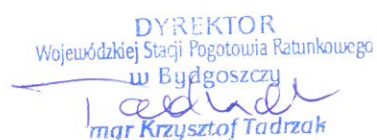 DYREKTOR
Wojewódzkiej Stacji Pogotowia Ratunkowego
w Bydgoszczy
mgr Krzysztof Tadrzak